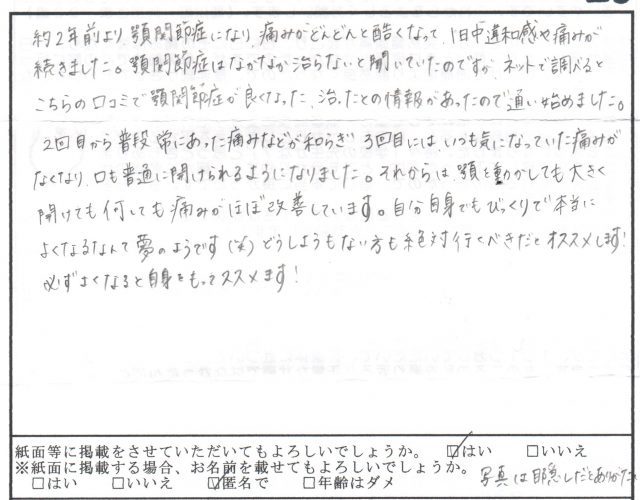 約2年前より顎関節症になり、痛みがどんどんと酷くなって、1日中違和感や痛みが
続きました。顎関節症はなかなか治らないと聞いていたのですが、ネットで調べると
こちらの口コミで顎関節症が良くなった、治ったとの情報があったので通い始めました。
2回目から普段常にあった痛みなどが和らぎ、3回目には、いつも気になっていた痛みが
なくなり、口も普通に開けられるようになりました。それからは顎を動かしても大きく
開けても何しても痛みがほぼ改善しています。自分自身でもびっくりで本当に
よくなるなんて夢のようです(笑)どうしようもない方も絶対行くべきだとオススメします!
必ずよくなると自身をもってオススメます!
紙面等に掲載をさせていただいてもよろしいでしょうか。 ☑はい □いいえ
※紙面に掲載する場合、お名前を載せてもよろしいでしょうか。
□はい □いいえ ☑匿名で □年齢はダメ 写真は目隠しだとありがたい